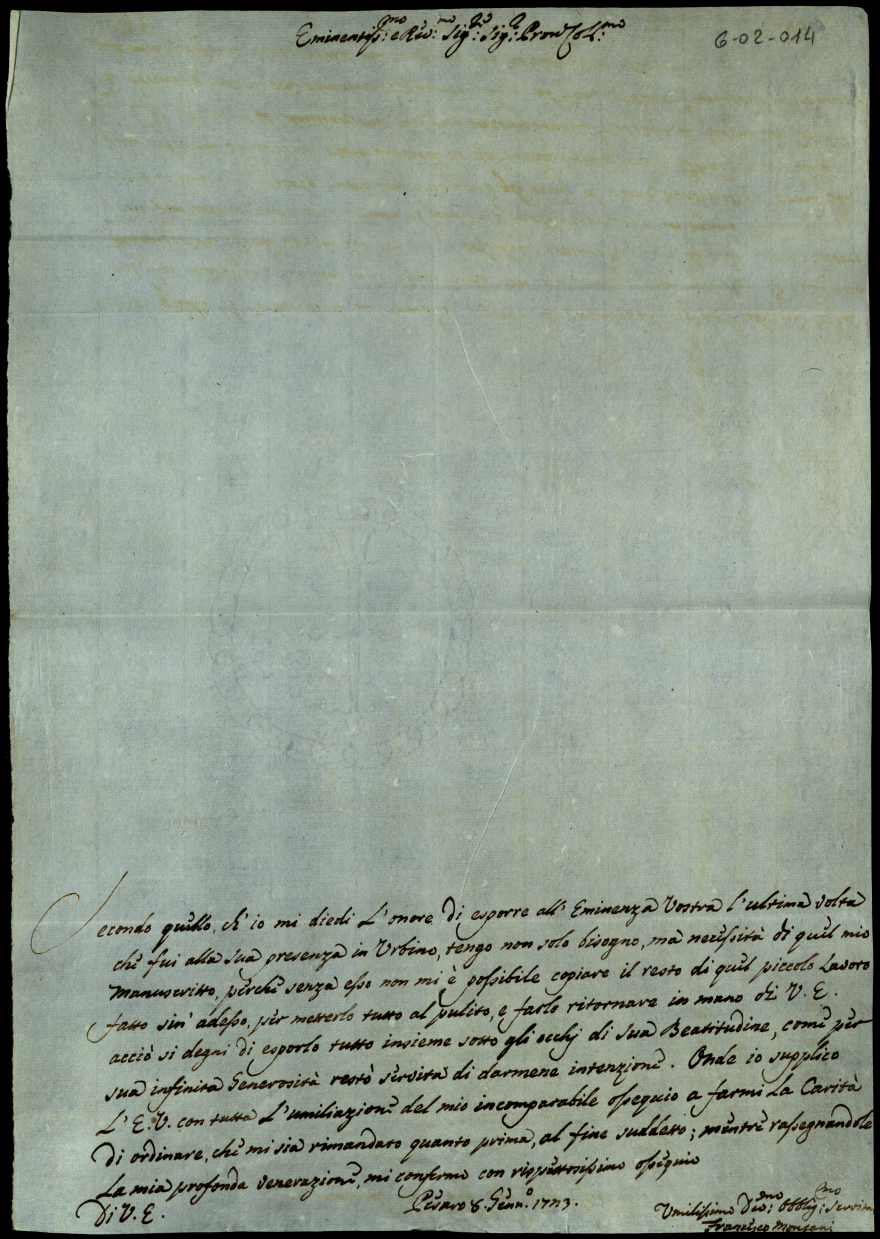 Eminentiss:mo e Rev:mo Sig:r Sig:r Pron Col:mo
6-02-014
Secondo quello, ch' io mi diedi L' onore di esporre all' Eminenza Vostra l' ultima volta
che fui alla sua presenza in Urbino, tengo non solo bisogno, ma necessità di quel mio
Manuscritto, perche senza esso non mi è possibile copiare il resto di quel piccolo Lavoro
fatto sin' adesso, per metterlo tutto al pulito, e farlo ritornare in mano di V. E.
acciò si degni di esporlo tutto insieme sotto gli occhj di sua Beatitudine, come per
sua infinita Generosità restò servita di darmene intenzione. Onde io supplico
L' E. V. con tutta L' umiliazione del mio incomparabile ossequio a farmi La Carità
di ordinare, che mi sia rimandato quanto prima, al fine suddetto; mentre rassegnandole
La mia profonda venerazione, mi confermo con rispettosissimo ossequio
Di V. E.
Pesaro 8. Genn.o
Umilissimo Dev:mo Obblig:mo
Francesco